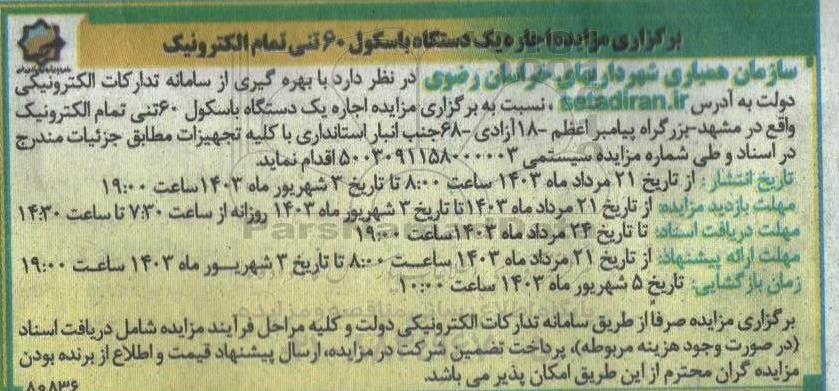 برگزاری مزایده اجاره یک دستگاه باسکول ۶۰ تنی تمام الکترونیک
سازمان همیاری شهرداریهای خراسان رضوی در نظر دارد با بهره گیری از سامانه تدارکات الکترونیکی
دولت به آدرس setadiran.ir ، نسبت به برگزاری مزایده اجاره یک دستگاه باسکول ۶۰تنی تمام الکترونیک
واقع در مشهد-بزرگراه پیامبر اعظم -۱۸آزادی -۶۸جنب انبار استانداری با کلیه تجهیزات مطابق جزئیات مندرج
در اسناد و طی شماره مزایده سیستمی ۵۰۰۳۰۹۱۱۵۸۰۰۰۰۰۳ اقدام نماید.
تاریخ انتشار: از تاریخ ۲۱ مرداد ماه ۱۴۰۳ ساعت ۸:۰۰ تا تاریخ ۳ شهریور ماه ۱۴۰۳ساعت ۱۹:۰۰
مهلت بازدید مزایده: از تاریخ ۲۱ مرداد ماه ۱۴۰۳تا تاریخ ۳ شهریور ماه ۱۴۰۳ روزانه از ساعت ۷:۳۰ تا ساعت ۱۴:۳۰
مهلت دریافت اسناد: تا تاریخ ۲۴ مرداد ماه ۱۴۰۳ساعت ۱۹:۰۰
مهلت ارائه پیشنهاد: از تاریخ ۲۱ مرداد ماه ۱۴۰۳ ساعت ۸:۰۰ تا تاریخ ۳ شهریور ماه ۱۴۰۳ ساعت ۱۹:۰۰
زمان بازگشایی: تاریخ ۵ شهریور ماه ۱۴۰۳ ساعت ۱۰:۰۰
برگزاری مزایده صرفاً از طریق سامانه تدارکات الکترونیکی دولت و کلیه مراحل فرآیند مزایده شامل دریافت اسناد
(در صورت وجود هزینه مربوطه)، پرداخت تضمین شرکت در مزایده، ارسال پیشنهاد قیمت و اطلاع از برنده بودن
مزایده گران محترم از این طریق امکان پذیر می باشد.
۸۰۸۳۶